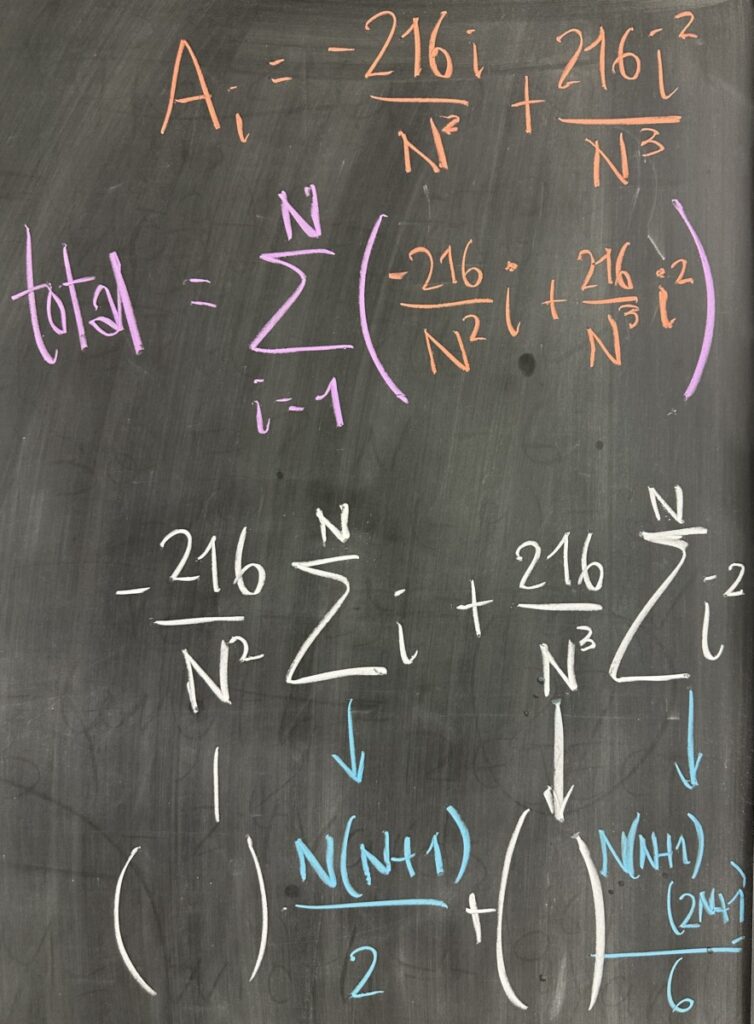 A_i = -216i/N² + 216i²/N³
total = ∑_{i=1}^{N} (-216/N² i + 216/N³ i²)
-216/N² ∑^{N} i + 216/N³ ∑^{N} i²
( ) N(N+1)/2 + ( ) N(N+1)(2N+1)/6